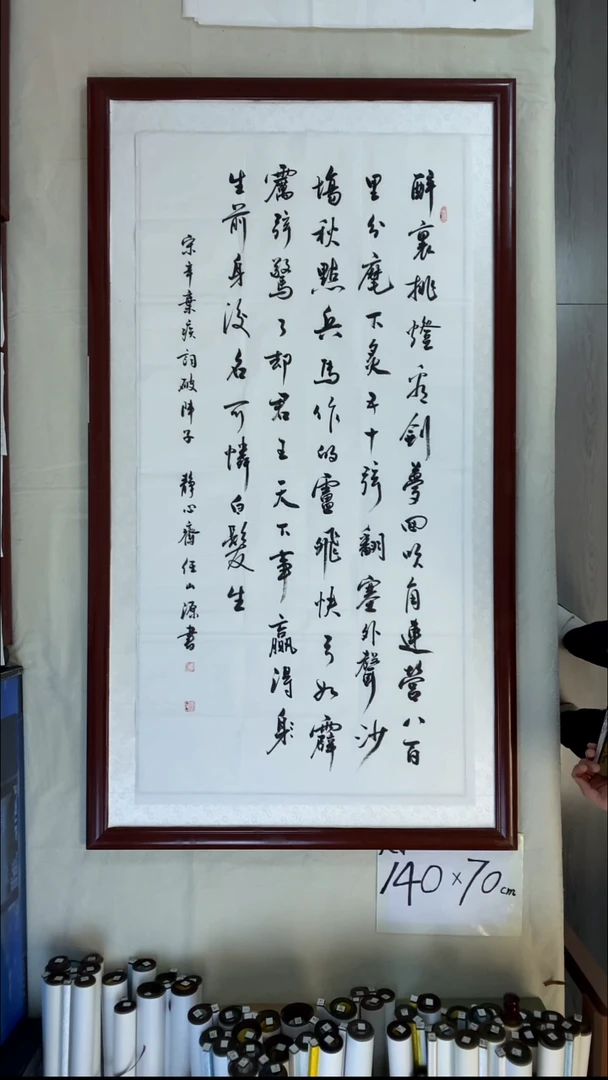 醉裏挑燈看劍夢回吹角連營八百
里分麾下炙五十弦翻塞外聲沙
場秋點兵馬作的盧飛快弓如霹
靂弦驚了却君王天下事贏得身
生前身後名可憐白髮生
宋辛棄疾詞破陣子 靜心齋任山源書
140×70cm